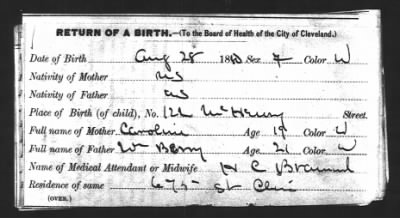 RETURN OF A BIRTH.—(To the Board of Health of the City of Cleveland.)
Date of Birth Aug 28 188 Sex F Color W
Nativity of Mother US
Nativity of Father US
Place of Birth (of child), No. 122 McHenry Street.
Full name of Mother Caroline Age 19 Color W
Full name of Father Wm Berry Age 21 Color W
Name of Medical Attendant or Midwife H C
Residence of same 675 St Clair
(OVER.)